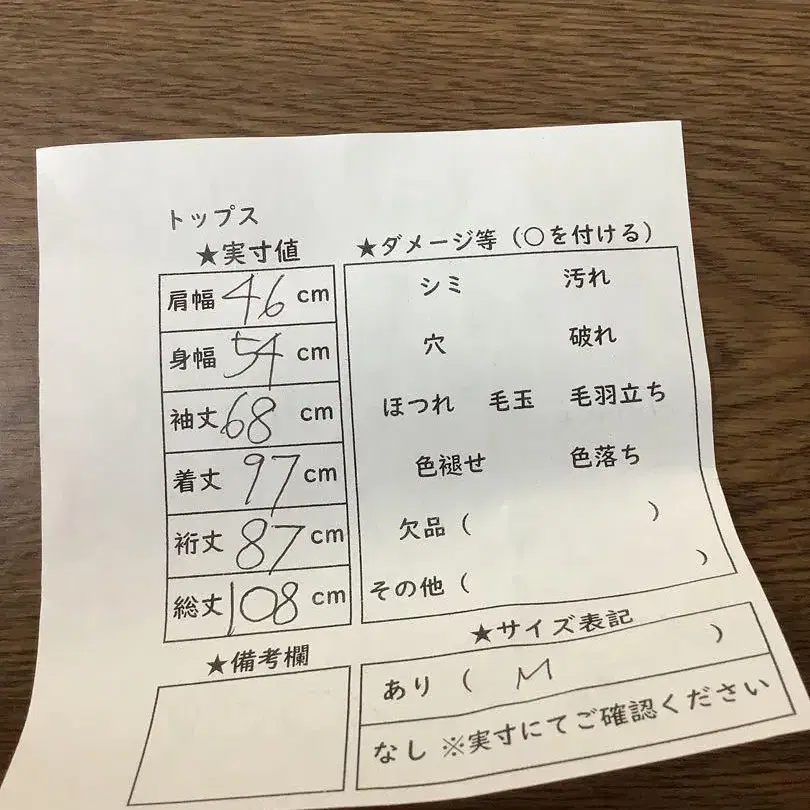 トップス
★実寸値
肩幅 46 cm
身幅 54 cm
袖丈 68 cm
着丈 97 cm
裄丈 87 cm
総丈 108 cm
★ダメージ等（○を付ける）
シミ 汚れ
穴 破れ
ほつれ 毛玉 毛羽立ち
色褪せ 色落ち
欠品（ ）
その他（ ）
★備考欄
★サイズ表記
あり（ M ）
なし ※実寸にてご確認ください